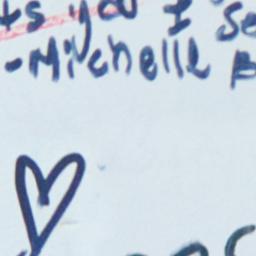 ts you I se
-Michelle B